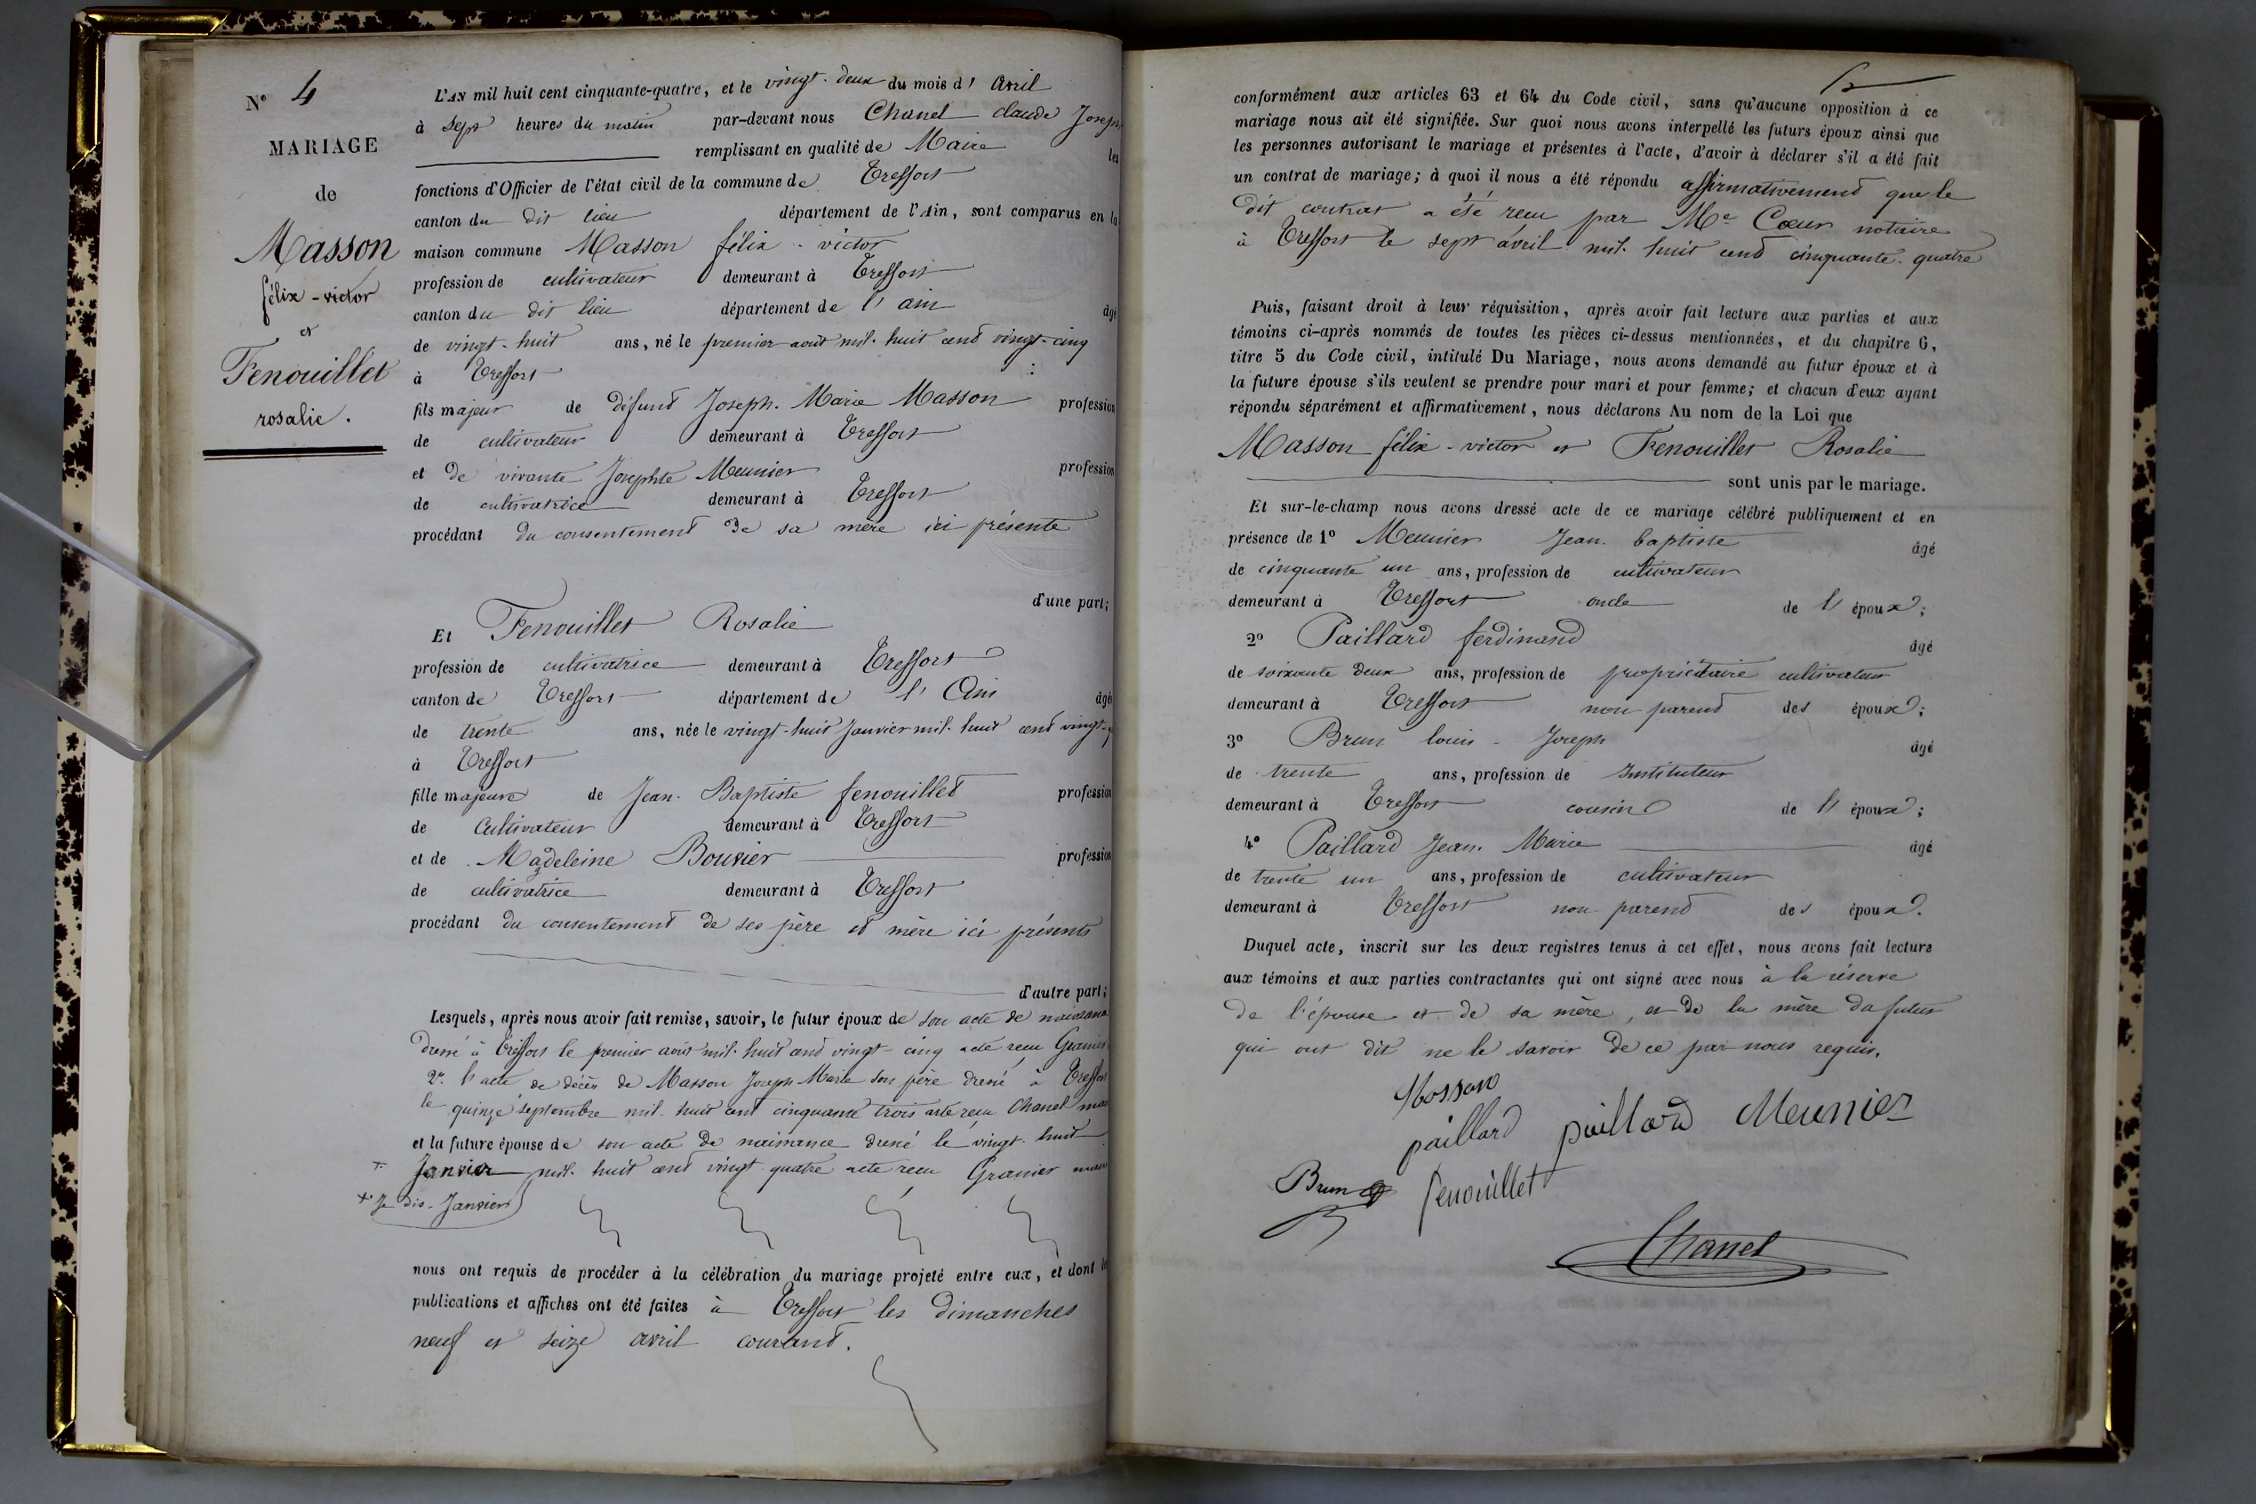 Nº 4
MARIAGE
de
Masson
félix-victor
et
Fenouillet
rosalie.
L'AN mil huit cent cinquante-quatre, et le vingt-deux du mois d' Avril
à sept heures du matin par-devant nous Chanel claude Joseph
remplissant en qualité de Maire les
fonctions d'Officier de l'état civil de la commune de Treffort
canton du dit lieu département de l'Ain, sont comparus en la
maison commune Masson félix-victor
profession de cultivateur demeurant à Treffort
canton du dit lieu département de l'ain âgé
de vingt-huit ans, né le premier août mil-huit cend vingt-cinq
à Treffort
fils majeur de défund Joseph-Marie Masson profession
de cultivateur demeurant à Treffort
et de vivante Josephte Meunier profession
de cultivatrice demeurant à Treffort
procédant du consentement de sa mère ici présente
d'une part;
Et Fenouillet Rosalie
profession de cultivatrice demeurant à Treffort
canton de Treffort département de l'Ain âgée
de trente ans, née le vingt-huit Janvier mil-huit cend vingt-
à Treffort
fille majeure de Jean-Baptiste fenouilled profession
de Cultivateur demeurant à Treffort
et de Madeleine Bouvier profession
de cultivatrice demeurant à Treffort
procédant du consentement de ses père et mère ici présents
d'autre part;
Lesquels, après nous avoir fait remise, savoir, le futur époux de son acte de naissance
dressé à Treffort le premier août mil-huit cend vingt-cinq acte reçu Granier
2º l'acte de décès de Masson Joseph-Marie son père dressé à Treffort
le quinze septembre mil-huit cent cinquante trois acte reçu Chanel maire
et la future épouse de son acte de naissance dressé le vingt-huit
+ Janvier mil-huit cend vingt-quatre acte reçu Granier maire
+ Je dis-Janvier
nous ont requis de procéder à la célébration du mariage projeté entre eux, et dont les
publications et affiches ont été faites à Treffort les dimanches
neuf et seize avril courand.
conformément aux articles 63 et 64 du Code civil, sans qu'aucune opposition à ce
mariage nous ait été signifiée. Sur quoi nous avons interpellé les futurs époux ainsi que
les personnes autorisant le mariage et présentes à l'acte, d'avoir à déclarer s'il a été fait
un contrat de mariage; à quoi il nous a été répondu affirmativement que le
dit contrat a été reçu par Me Cœur notaire
à Treffort le sept avril mil-huit cend cinquante-quatre
Puis, faisant droit à leur réquisition, après avoir fait lecture aux parties et aux
témoins ci-après nommés de toutes les pièces ci-dessus mentionnées, et du chapitre 6,
titre 5 du Code civil, intitulé Du Mariage, nous avons demandé au futur époux et à
la future épouse s'ils veulent se prendre pour mari et pour femme; et chacun d'eux ayant
répondu séparément et affirmativement, nous déclarons Au nom de la Loi que
Masson félix-victor et Fenouillet Rosalie
sont unis par le mariage.
Et sur-le-champ nous avons dressé acte de ce mariage célébré publiquement et en
présence de 1º Meunier Jean-baptiste âgé
de cinquante un ans, profession de cultivateur
demeurant à Treffort oncle de l' époux;
2º Paillard ferdinand âgé
de soixante deux ans, profession de propriétaire cultivateur
demeurant à Treffort non parend des époux;
3º Brun louis-Joseph âgé
de trente ans, profession de Instituteur
demeurant à Treffort cousin de l' époux;
4º Paillard Jean-Marie âgé
de trente un ans, profession de cultivateur
demeurant à Treffort non parend des époux.
Duquel acte, inscrit sur les deux registres tenus à cet effet, nous avons fait lecture
aux témoins et aux parties contractantes qui ont signé avec nous à la réserve
de l'épouse et de sa mère, et de la mère du futur
qui ont dit ne le savoir de ce par nous requis.
Masson
paillard paillard Meunier
Brun fenouillet
Chanel